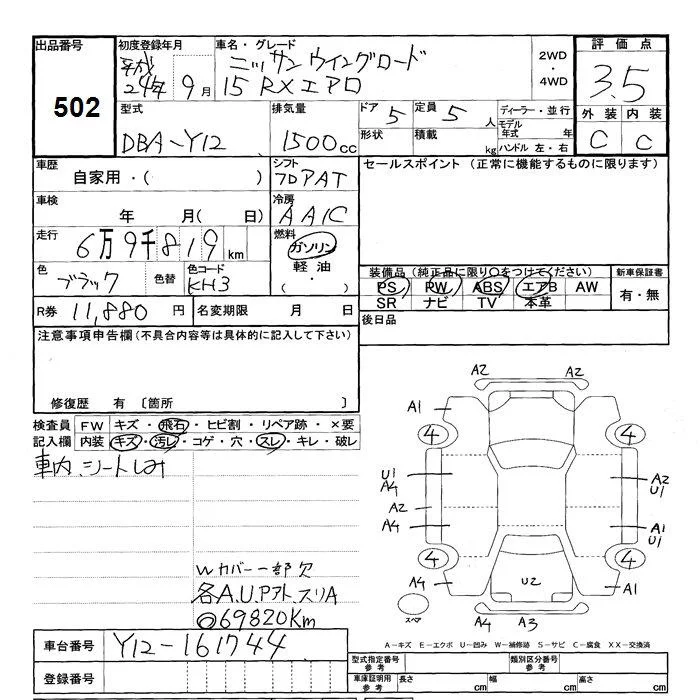 出品番号
502
初度登録年月
平成
24年 9月
車名・グレード
ニッサン ウイングロード
15 RXエアロ
2WD
・
4WD
評価点
3.5
外装 内装
C C
型式
DBA-Y12
排気量
1500cc
ドア 5
形状
定員 5人
積載 kg
ディーラー・並行
モデル年式 年
ハンドル 左・右
車歴
自家用・( )
シフト
フロアAT
セールスポイント (正常に機能するものに限ります)
車検
年 月( 日)
冷房
AAC
走行
6万9千819km
燃料
ガソリン
軽油
・
( )
色
ブラック
色替
色コード
KH3
装備品 (純正品に限り○をつけてください)
PS PW ABS エアB AW
SR ナビ TV 本革
新車保証書
有・無
R券 11,880円
名変期限 月 日
後日品
注意事項申告欄 (不具合内容等は具体的に記入して下さい)
修復歴 有 〔箇所 〕
検査員 FW キズ・飛石・ヒビ割・リペア跡・×要
記入欄 内装 キズ・汚レ・コゲ・穴・スレ・キレ・破レ
車内、シートしみ
Wカバー一部欠
各A.U.Pアト、スリA
69820Km
A2 A2
A1
4 4
U1
A4
A2
U1
A2
A4
A1
U1
4 4
A4
U2
A1
スペア
A4 A3
A-キズ E-エクボ U-凹み W-補修跡 S-サビ C-腐食 XX-交換済
車台番号 Y12-161744
型式指定番号
参考
類別区分番号
参考
登録番号
車庫証明用
参考
長さ cm
幅 cm
高さ cm